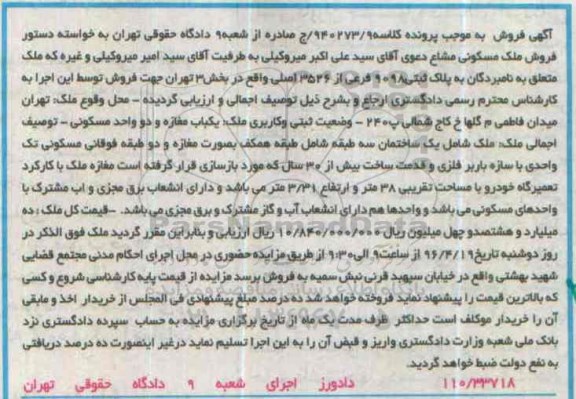 آگهی فروش به موجب پرونده کلاسه۹۴۰۲۷۳/۹/ج صادره از شعبه۹ دادگاه حقوقی تهران به خواسته دستور
فروش ملک مسکونی مشاع دعوی آقای سید علی اکبر میروکیلی به طرفیت آقای سید امیر میروکیلی و غیره که ملک
متعلق به نامبردگان به پلاک ثبتی۹۰۹۸ فرعی از ۳۵۲۶ اصلی واقع در بخش۳ تهران جهت فروش توسط این اجرا به
کارشناس محترم رسمی دادگستری ارجاع و بشرح ذیل توصیف اجمالی و ارزیابی گردیده – محل وقوع ملک: تهران
میدان فاطمی م گلها خ کاج شمالی پ۲۴۰ – وضعیت ثبتی وکاربری ملک: یکباب مغازه و دو واحد مسکونی – توصیف
اجمالی ملک: ملک شامل یک ساختمان سه طبقه شامل طبقه همکف بصورت مغازه و دو طبقه فوقانی مسکونی تک
واحدی با سازه باربر فلزی و قدمت ساخت بیش از ۳۰ سال که مورد بازسازی قرار گرفته است مغازه ملک با کارکرد
تعمیرگاه خودرو با مساحت تقریبی ۳۸ متر و ارتفاع ۳/۳۱ متر می باشد و دارای انشعاب برق مجزی و اب مشترک با
واحدهای مسکونی می باشد و واحدها هم دارای انشعاب آب و گاز مشترک و برق مجزی می باشد. –قیمت کل ملک : ده
میلیارد و هشتصدو چهل میلیون ریال ۱۰/۸۴۰/۰۰۰/۰۰۰ ریال ارزیابی و بنابراین مقرر گردید ملک فوق الذکر در
روز دوشنبه تاریخ۹۶/۴/۱۹ از ساعت۹ الی۹:۳۰ از طریق مزایده حضوری در محل اجرای احکام مدنی مجتمع قضایی
شهید بهشتی واقع در خیابان سپهبد قرنی نبش سمیه به فروش برسد مزایده از قیمت پایه کارشناسی شروع و کسی
که بالاترین قیمت را پیشنهاد نماید فروخته خواهد شد ده درصد مبلغ پیشنهادی فی المجلس از خریدار اخذ و مابقی
آن را خریدار موکلف است حداکثر ظرف مدت یک ماه از تاریخ برگزاری مزایده به حساب سپرده دادگستری نزد
بانک ملی شعبه وزارت دادگستری واریز و قبض آن را به این اجرا تسلیم نماید درغیر اینصورت ده درصد دریافتی
به نفع دولت ضبط خواهد گردید.
۱۱۰/۳۳۷۱۸ دادورز اجرای شعبه ۹ دادگاه حقوقی تهران